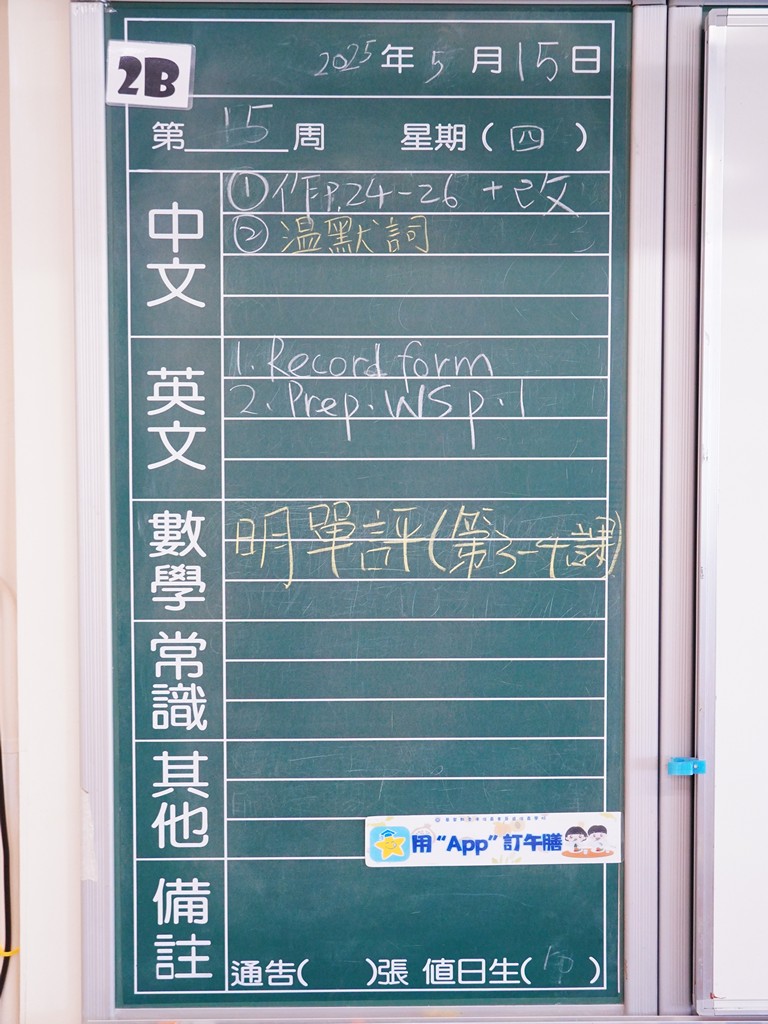 2B
2025年5月15日
第15周 星期(四)
中文
①作P.24-26 +改
②溫默詞
英文
1. Record form
2. Prep. WS p.1
數學
明單評(第3-4課)
常識
其他
用“App”訂午膳
備註
通告( )張 值日生( )